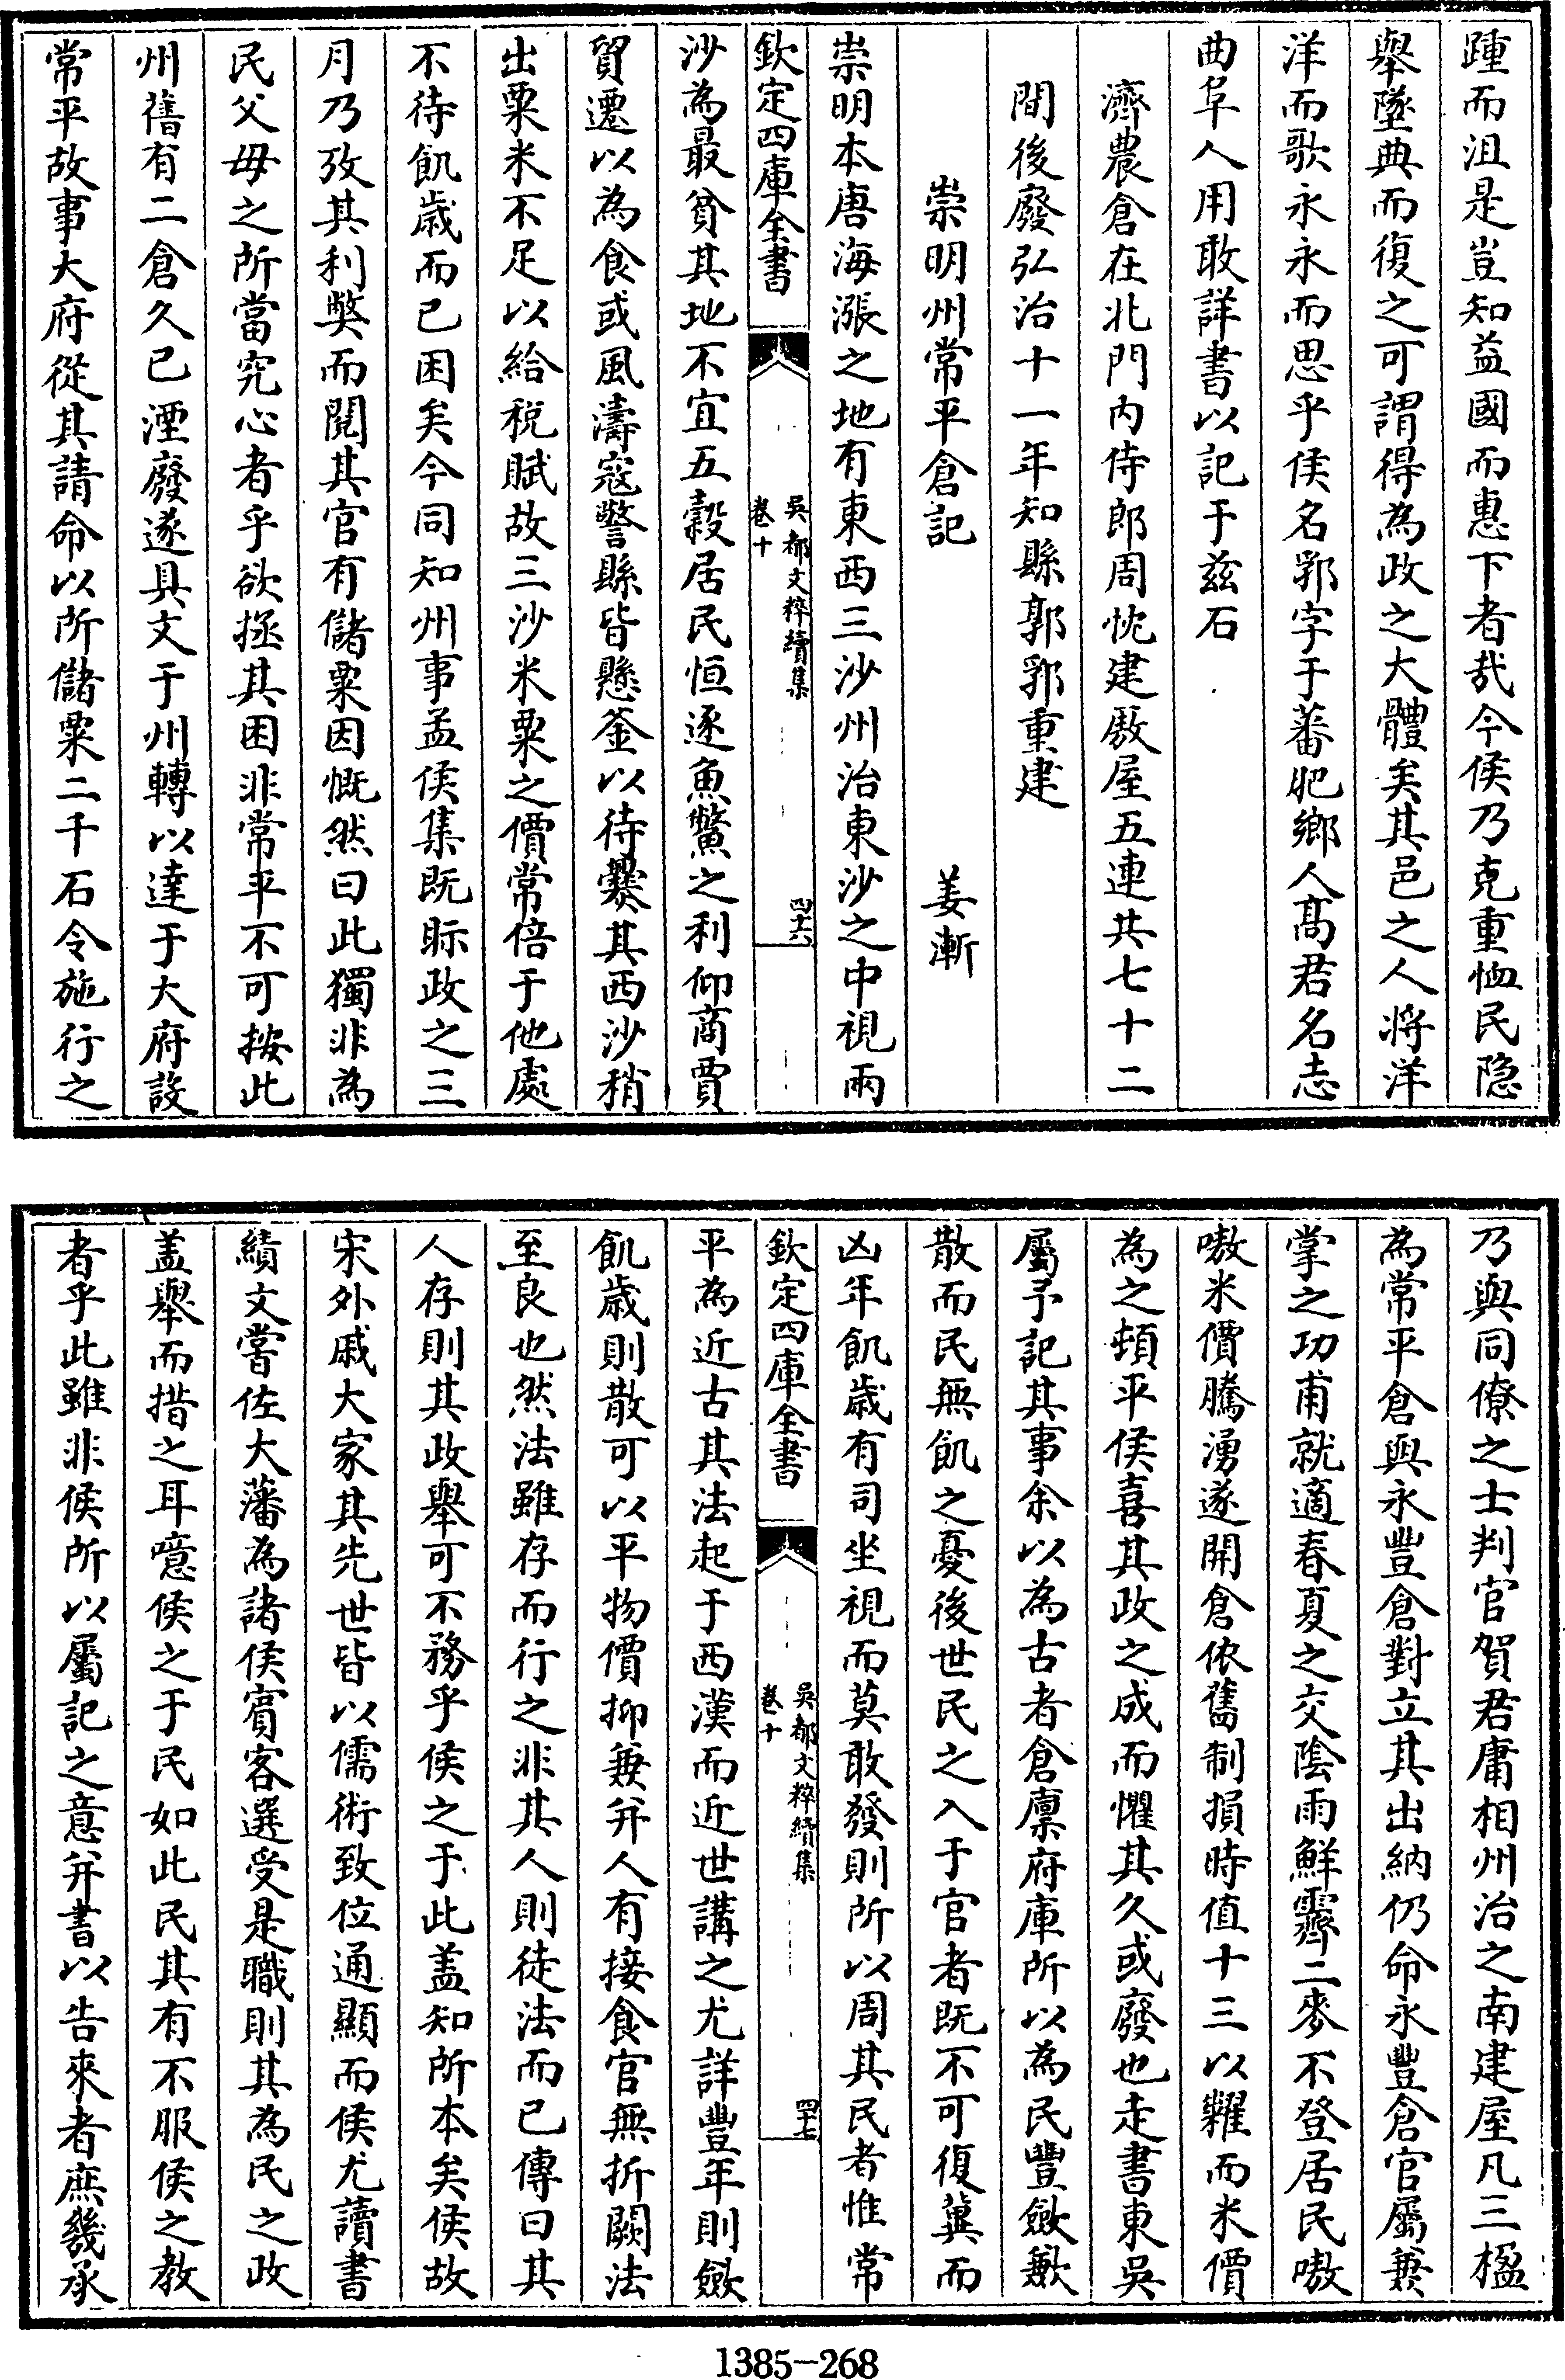 踵而沮是豈知益國而惠下者哉今侯乃克重恤民隐
舉墜典而復之可謂得為政之大體矣其邑之人將洋
洋而歌永永而思乎侯名郛字于蕃肥鄉人髙君名志
曲阜人用敢詳書以記于兹石
濟農倉在北門内侍郎周忱建厫屋五連共七十二
間後廢弘治十一年知縣郭郛重建
崇明州常平倉記　姜漸
崇明本唐海漲之地有東西三沙州治東沙之中視兩
欽定四庫全書
吳都文粹續集
卷十
四十六
沙為最貧其地不宜五穀居民恒逐魚鱉之利仰商賈
貿遷以為食或風濤寇警縣皆懸釜以待爨其西沙稍
出粟米不足以給税賦故三沙米粟之價常倍于他處
不待飢歲而已困矣今同知州事孟侯集既眎政之三
月乃攷其利獘而閲其官有儲粟因慨然曰此獨非為
民父母之所當究心者乎欲拯其困非常平不可按此
州舊有二倉久已湮廢遂具文于州轉以達于大府設
常平故事大府從其請命以所儲粟二千石令施行之
乃與同僚之士判官賀君庸相州治之南建屋凡三楹
為常平倉與永豐倉對立其出納仍命永豐倉官屬兼
掌之功甫就適春夏之交陰雨鮮霽二麥不登居民嗷
嗷米價騰湧遂開倉依舊制損時值十三以糶而米價
為之頓平侯喜其政之成而懼其久或廢也走書東吳
屬予記其事余以為古者倉廪府庫所以為民豐斂歉
散而民無飢之憂後世民之入于官者既不可復冀而
凶年飢歲有司坐視而莫敢發則所以周其民者惟常
欽定四庫全書
吳都文粹續集
卷十
四十七
平為近古其法起于西漢而近世講之尤詳豐年則斂
飢歲則散可以平物價抑兼并人有接食官無折闕法
至良也然法雖存而行之非其人則徒法而已傳曰其
人存則其政舉可不務乎侯之于此盖知所本矣侯故
宋外戚大家其先世皆以儒術致位通顯而侯尤讀書
績文嘗佐大藩為諸侯賓客選受是職則其為民之政
盖舉而措之耳噫侯之于民如此民其有不服侯之教
者乎此雖非侯所以屬記之意并書以告來者庶幾承
1385-268